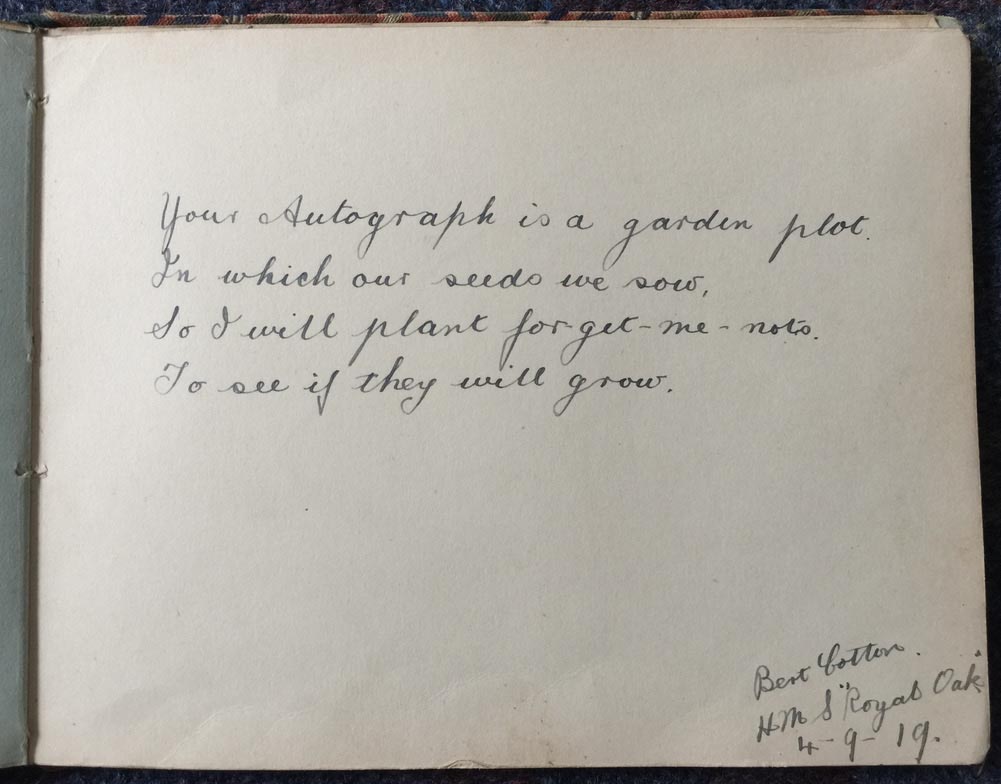 Your Autograph is a garden plot.
In which our seeds we sow,
So I will plant for-get-me-nots.
To see if they will grow.
Bert Cotton.
H.M S "Royal Oak"
4-9-19.